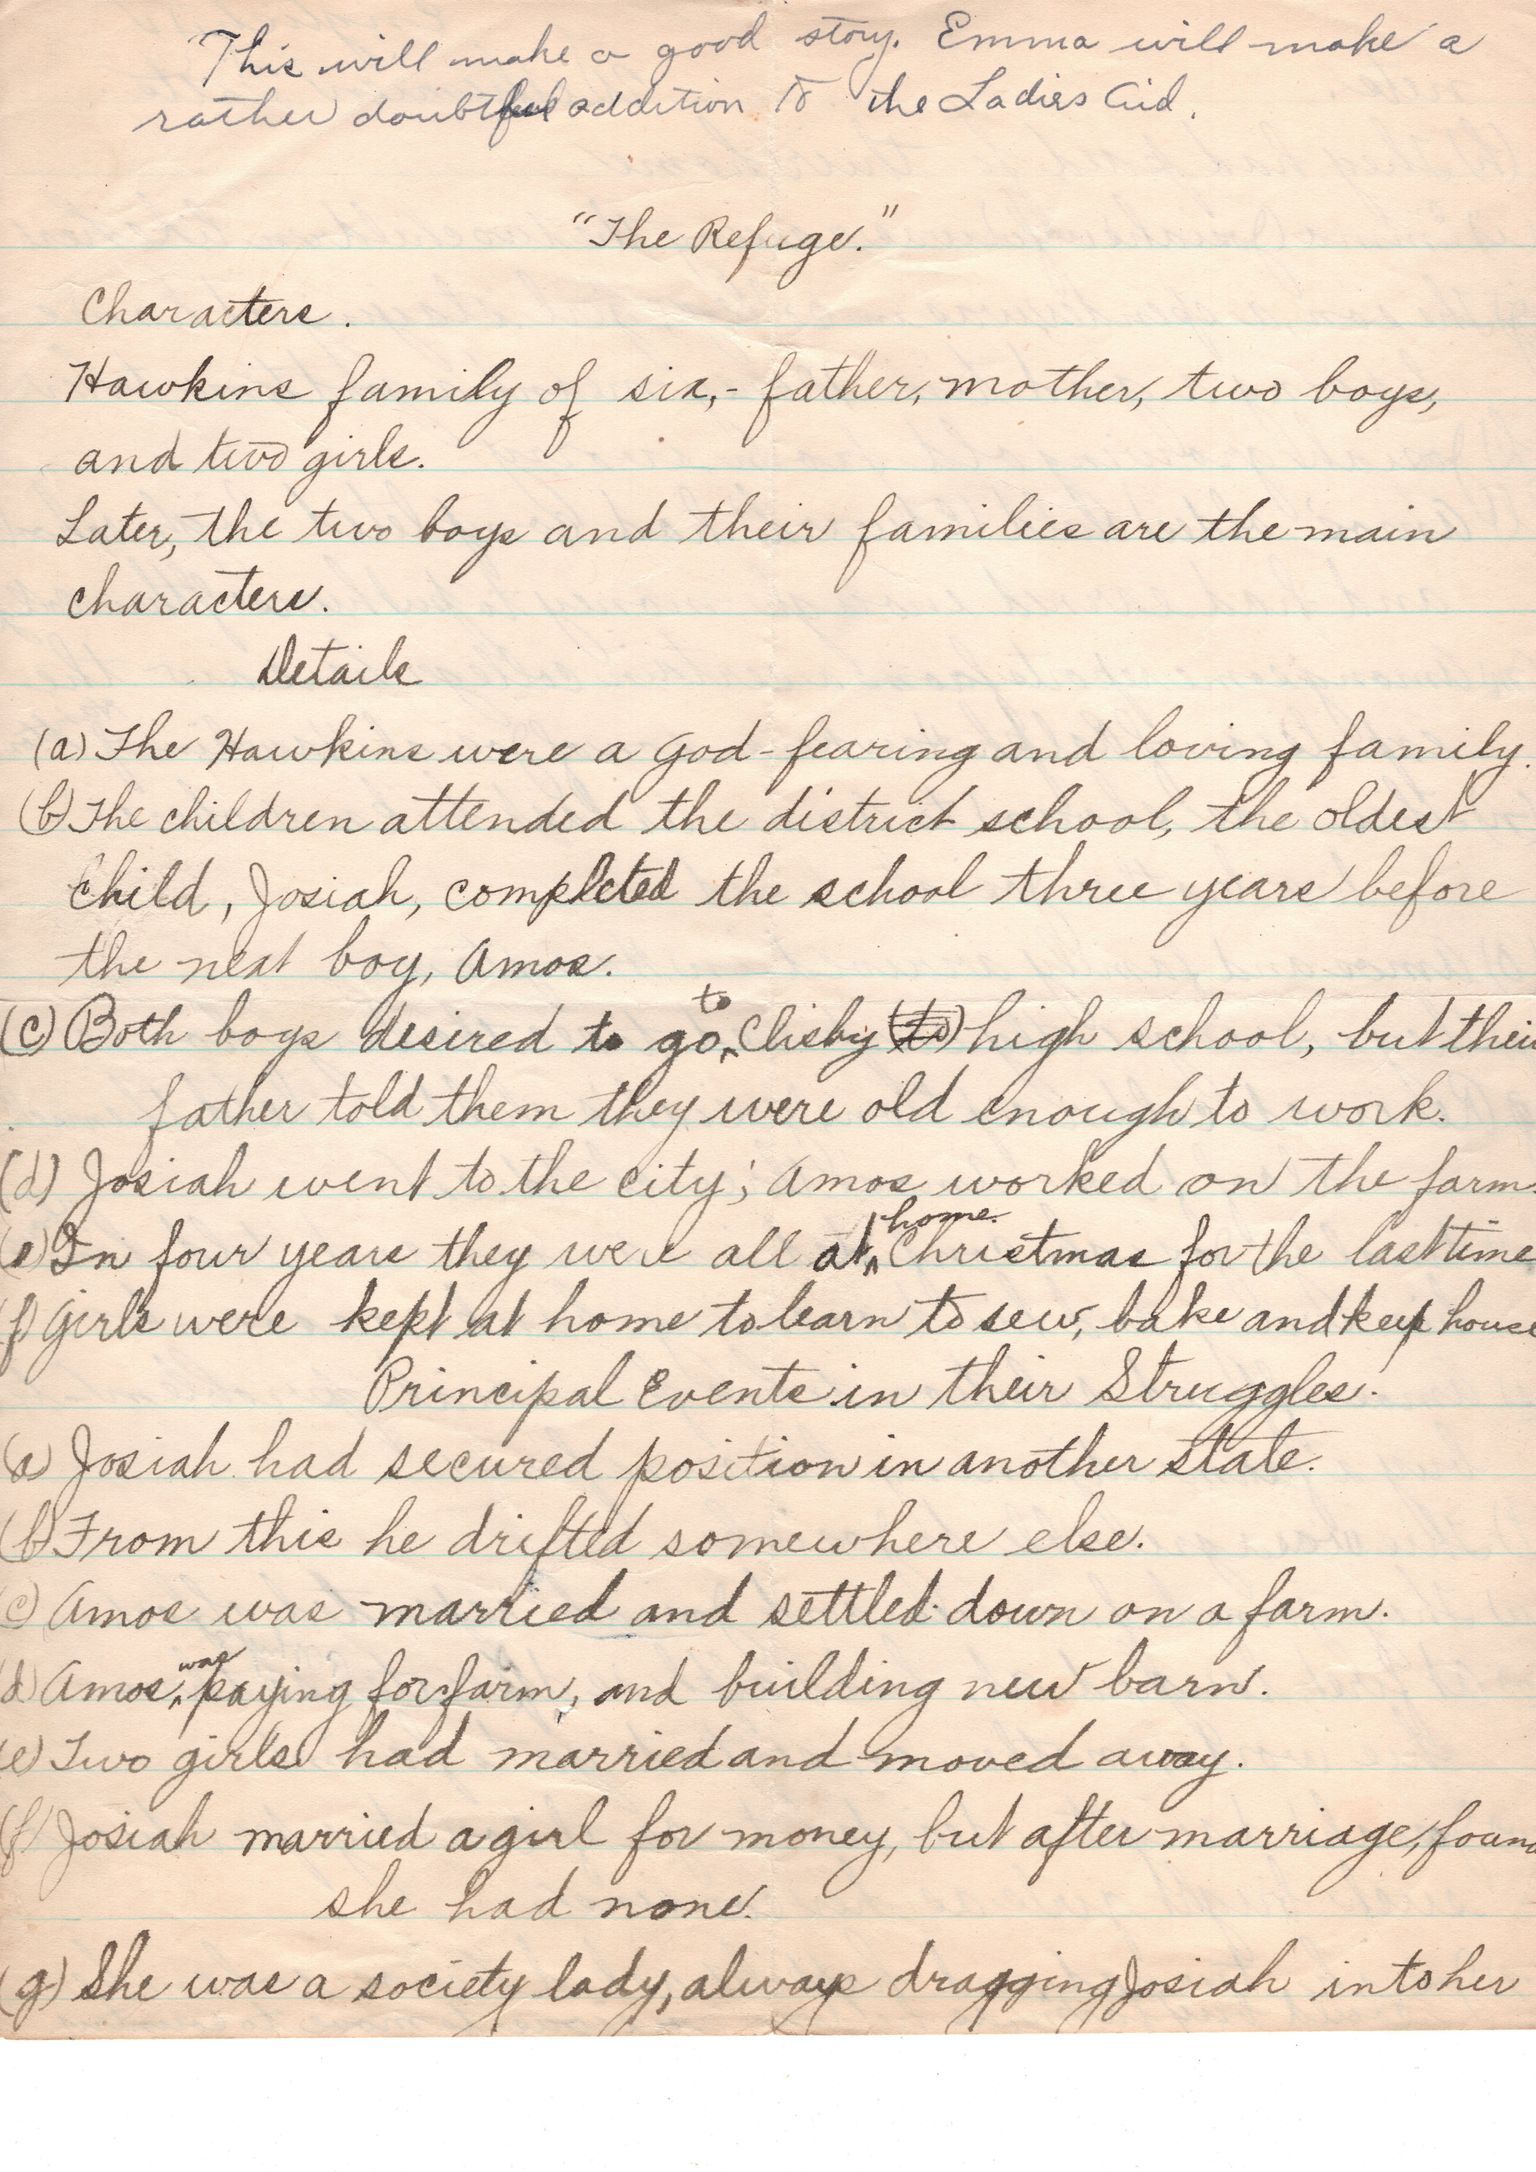 This will make a good story. Emma will make a
rather doubtful addition to the Ladies Aid.
"The Refuge."
Characters.
Hawkins family of six,- father, mother, two boys,
and two girls.
Later, the two boys and their families are the main
characters.
Details
(a) The Hawkins were a God-fearing and loving family.
(b) The children attended the district school, the oldest
child, Josiah, completed the school three years before
the next boy, Amos.
(c) Both boys desired to go to Clisby high school, but their
father told them they were old enough to work.
(d) Josiah went to the city; Amos worked on the farm.
(e) In four years they were all at home Christmas for the last time
(f) Girls were kept at home to learn to sew, bake and keep house
Principal Events in their Struggles.
(a) Josiah had secured position in another state.
(b) From this he drifted somewhere else.
(c) Amos was married and settled down on a farm.
(d) Amos, was paying for farm, and building new barn.
(e) Two girls had married and moved away.
(f) Josiah married a girl for money, but after marriage, found
she had none.
(g) She was a society lady, always dragging Josiah into her